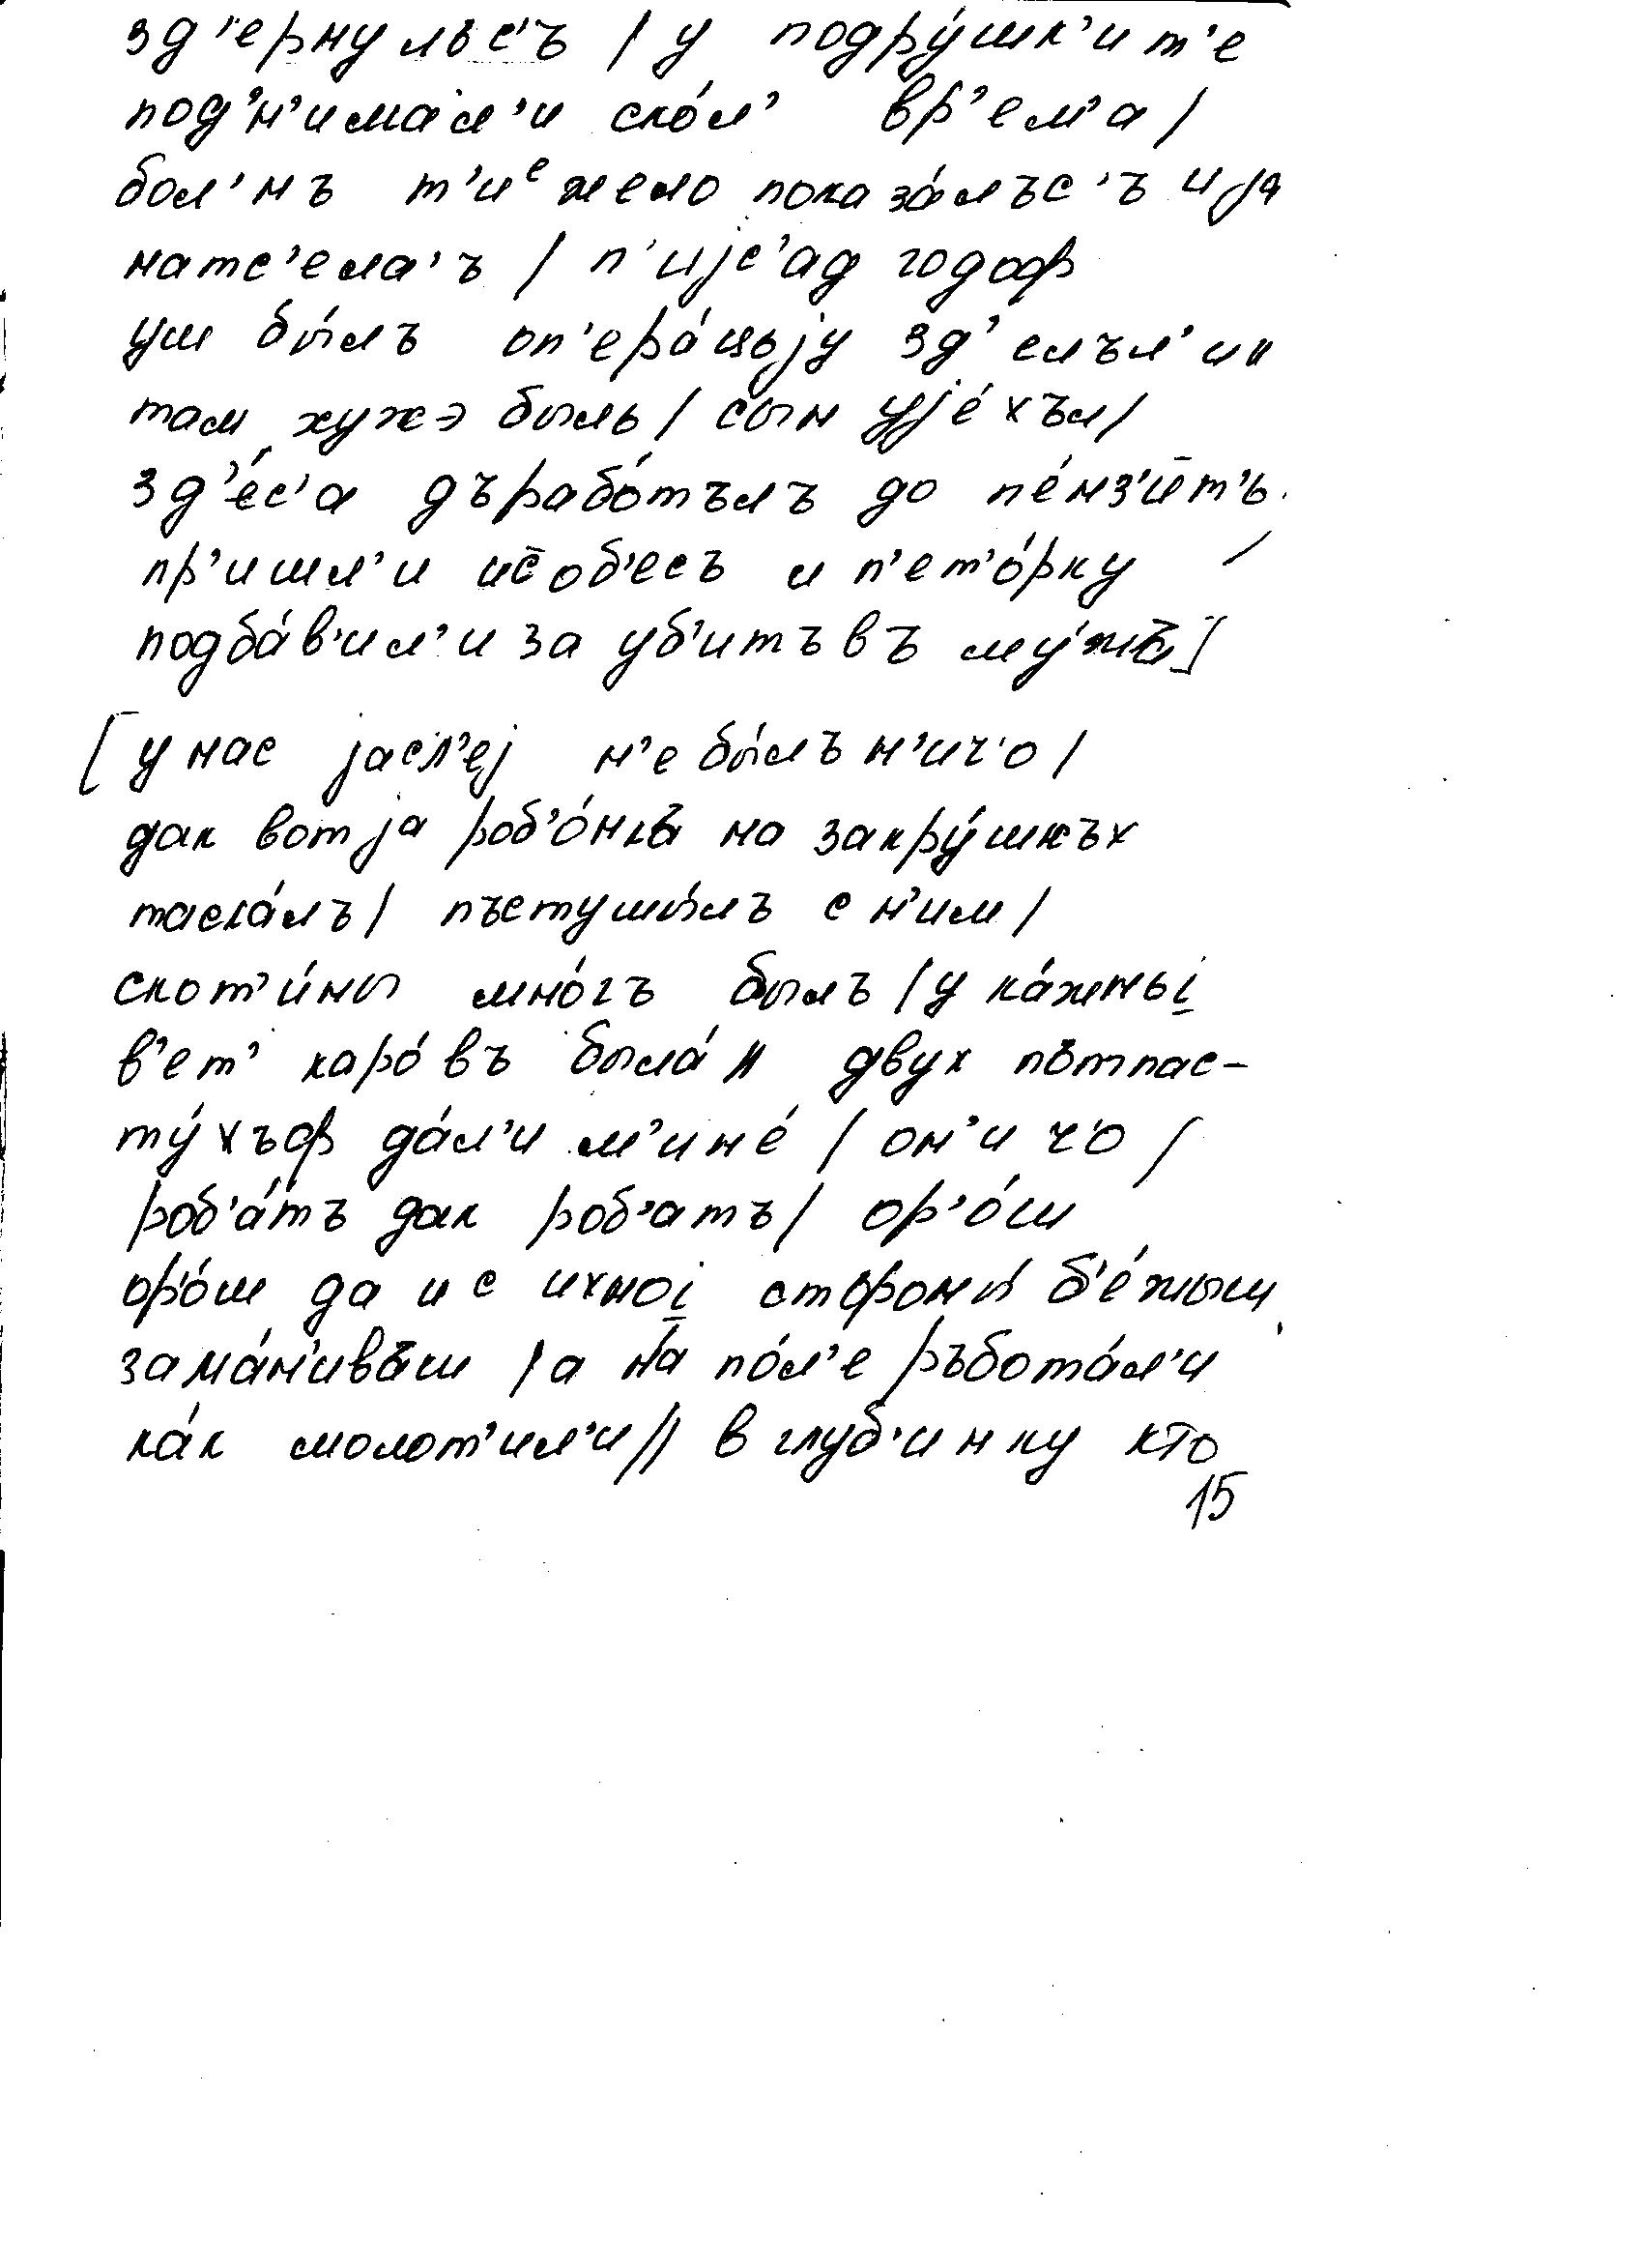 зд'ернульс'ъ / у подру́шк'ит'е
под'н'имал'и ско́л' вр'ем'а /
бол'нъ т'иᵉжело показа́лъс'ъ ија
натс'ела'ъ / п'ијс'ад годоф
уш бы́лъ оп'ера́цыју зд'елъл'и //
там хужэ быль / сын ује́хъл /
зд'е́с'а дърабо́тълъ до пе́нз'ийт'ь.
пр'ишл'и исоб'есъ и п'ет'о́рку /
подба́в'ил'и за уб'итъвъ му́жъ]
[у нас јасл'еј н'е бы́лъ н'ич'о /
дак вот ја роб'о́нкъ на закру́шкъх
таска́лъ / пъстушы́лъ с н'им /
скот'и́ны мно́гъ былъ / у ка́жныі
в'ет' каро́въ была́ // двух пътпас-
ту́хъф да́л'и м'ине́ / он'и ч'о /
роб'а́тъ дак роб'атъ / ор'о́ш
ор'о́ш да и с ихноі стороны́ б'е́жыш
зама́н'ивъш / а на по́л'е ръбота́л'и
ка́к молот'ил'и // в глуб'инку кто
15